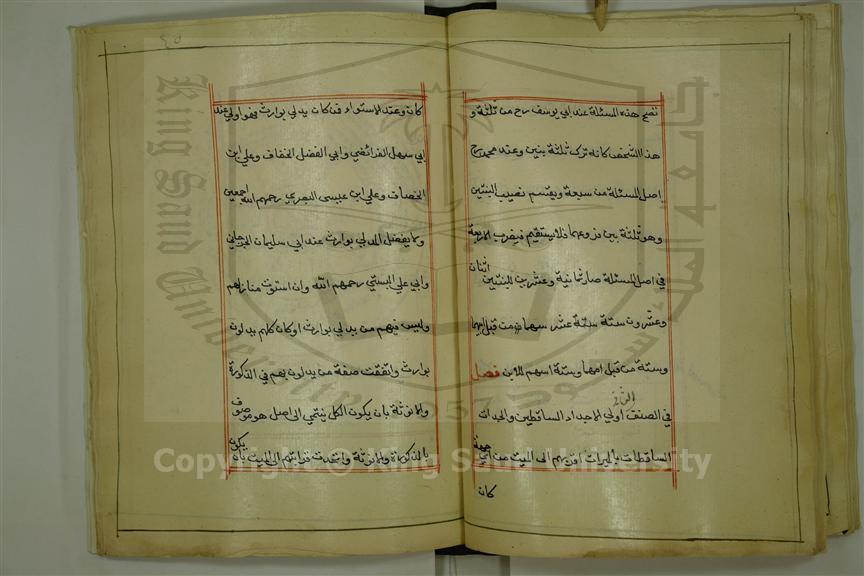 تصح هذه المسئلة عند ابي يوسف رح من ثلثة و
هذا الشخص كانه ترك ثلثة بنين وعند محمد رح
اصل المسئلة من سبعة ويقسم نصيب البنتين
وهو ثلثة بين فلا يستقيم فيضرب الاربعة
في اصل المسئلة صار ثمانية وعشرين للبنتين اثنان
وعشرون ستة ستة عشر سهما من قبل ابيهما
وستة من قبل امهما وستة اسهم للابن فصل
في الصنف الثاني اولي الاجداد الساقطين والجدات
الساقطات بالميراث اقربهم الى الميت من اي جهة
كان
كان وعند الاستواء فمن كان يدلي بوارث فهو اولى عند
ابي سهل الفرائضي وابي الفضل الخفاف وعلي ابن
الخصاف وعلي ابن عيسى البصري رحمهم الله اجمعين
ولا يفضل المدلي بوارث عند ابي سليمان الجرجاني
وابي علي البستي رحمهم الله وان استوت منازلهم
وليس فيهم من يدلي بوارث او كان كلهم يدلون
بوارث واتفقت صفة من يدلون بهم في الذكورة
والانوثة بان يكون الكل ينتمي الى اصل هو موصوف
بالذكورة والانوثة واتحدت قرابتهم الى الميت بان يكون
Copyright © King Saud University
King Saud University
جامعة الملك سعود
1957